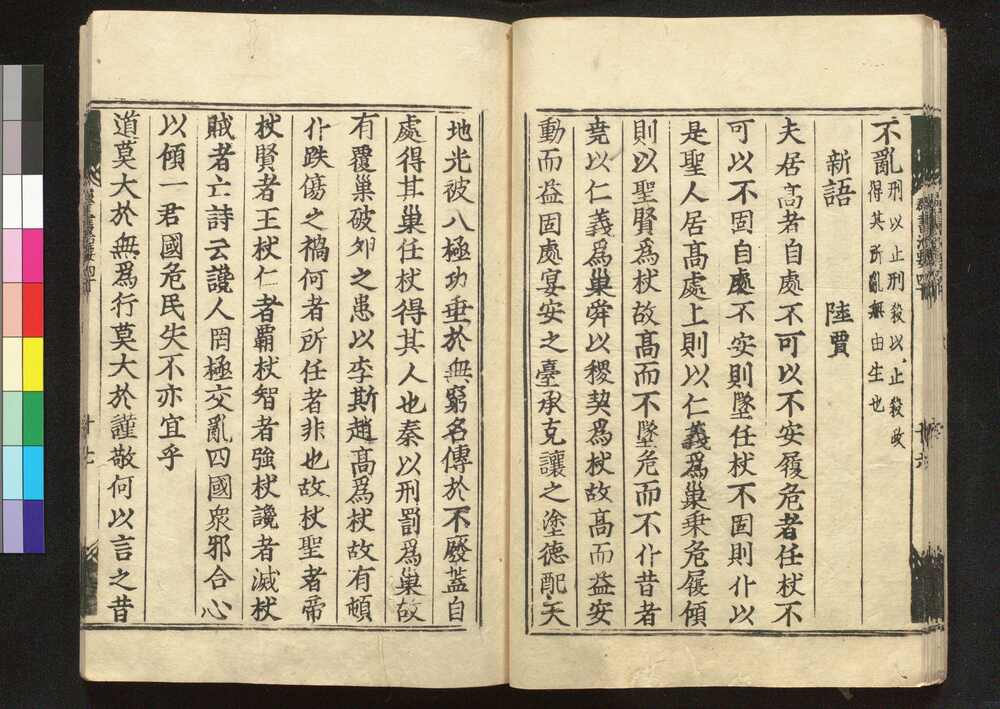 不亂刑以止刑殺以止殺政
得其所亂無由生也
新語 陸賈
夫居高者自處不可以不安履危者任杖不
可以不固自處不安則墜任杖不固則仆以
是聖人居高處上則以仁義爲巢乘危履傾
則以聖賢爲杖故高而不墜危而不仆昔者
堯以仁義爲巢舜以稷契爲杖故高而益安
動而益固處宴安之臺承克讓之塗德配天
地光被八極功垂於無窮名傳於不廢蓋自
處得其巢任杖得其人也秦以刑罰爲巢故
有覆巢破卵之患以李斯趙高爲杖故有頓
仆跌傷之禍何者所任者非也故杖聖者帝
杖賢者王杖仁者覇杖智者強杖讒者滅杖
賊者亡詩云讒人罔極交亂四國衆邪合心
以傾一君國危民失不亦宜乎
道莫大於無爲行莫大於謹敬何以言之昔
十七